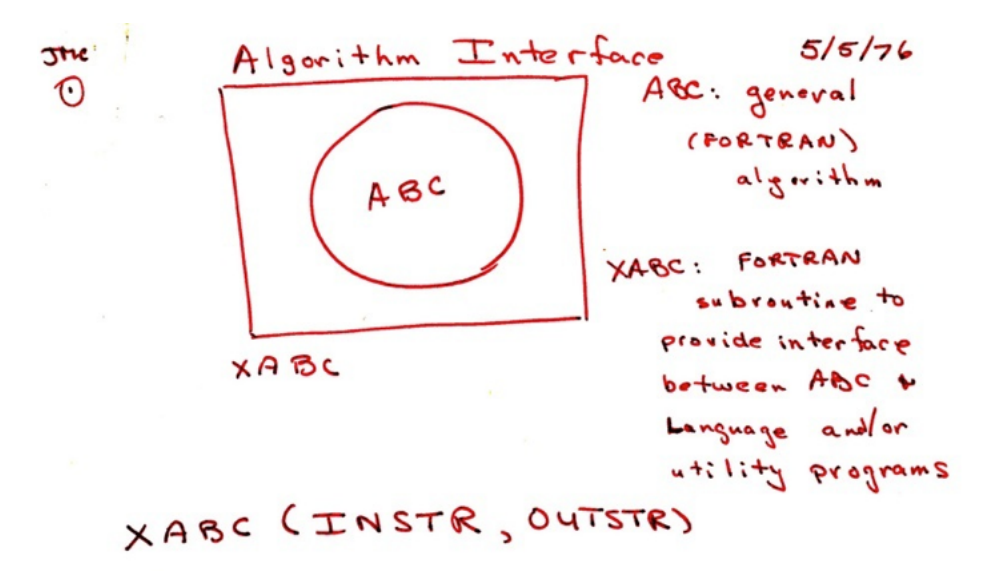 JMC
Algorithm Interface
5/5/76
ABC: general
(FORTRAN)
algorithm
ABC
XABC: FORTRAN
subroutine to
provide interface
between ABC &
Language and/or
utility programs
XABC
XABC (INSTR, OUTSTR)